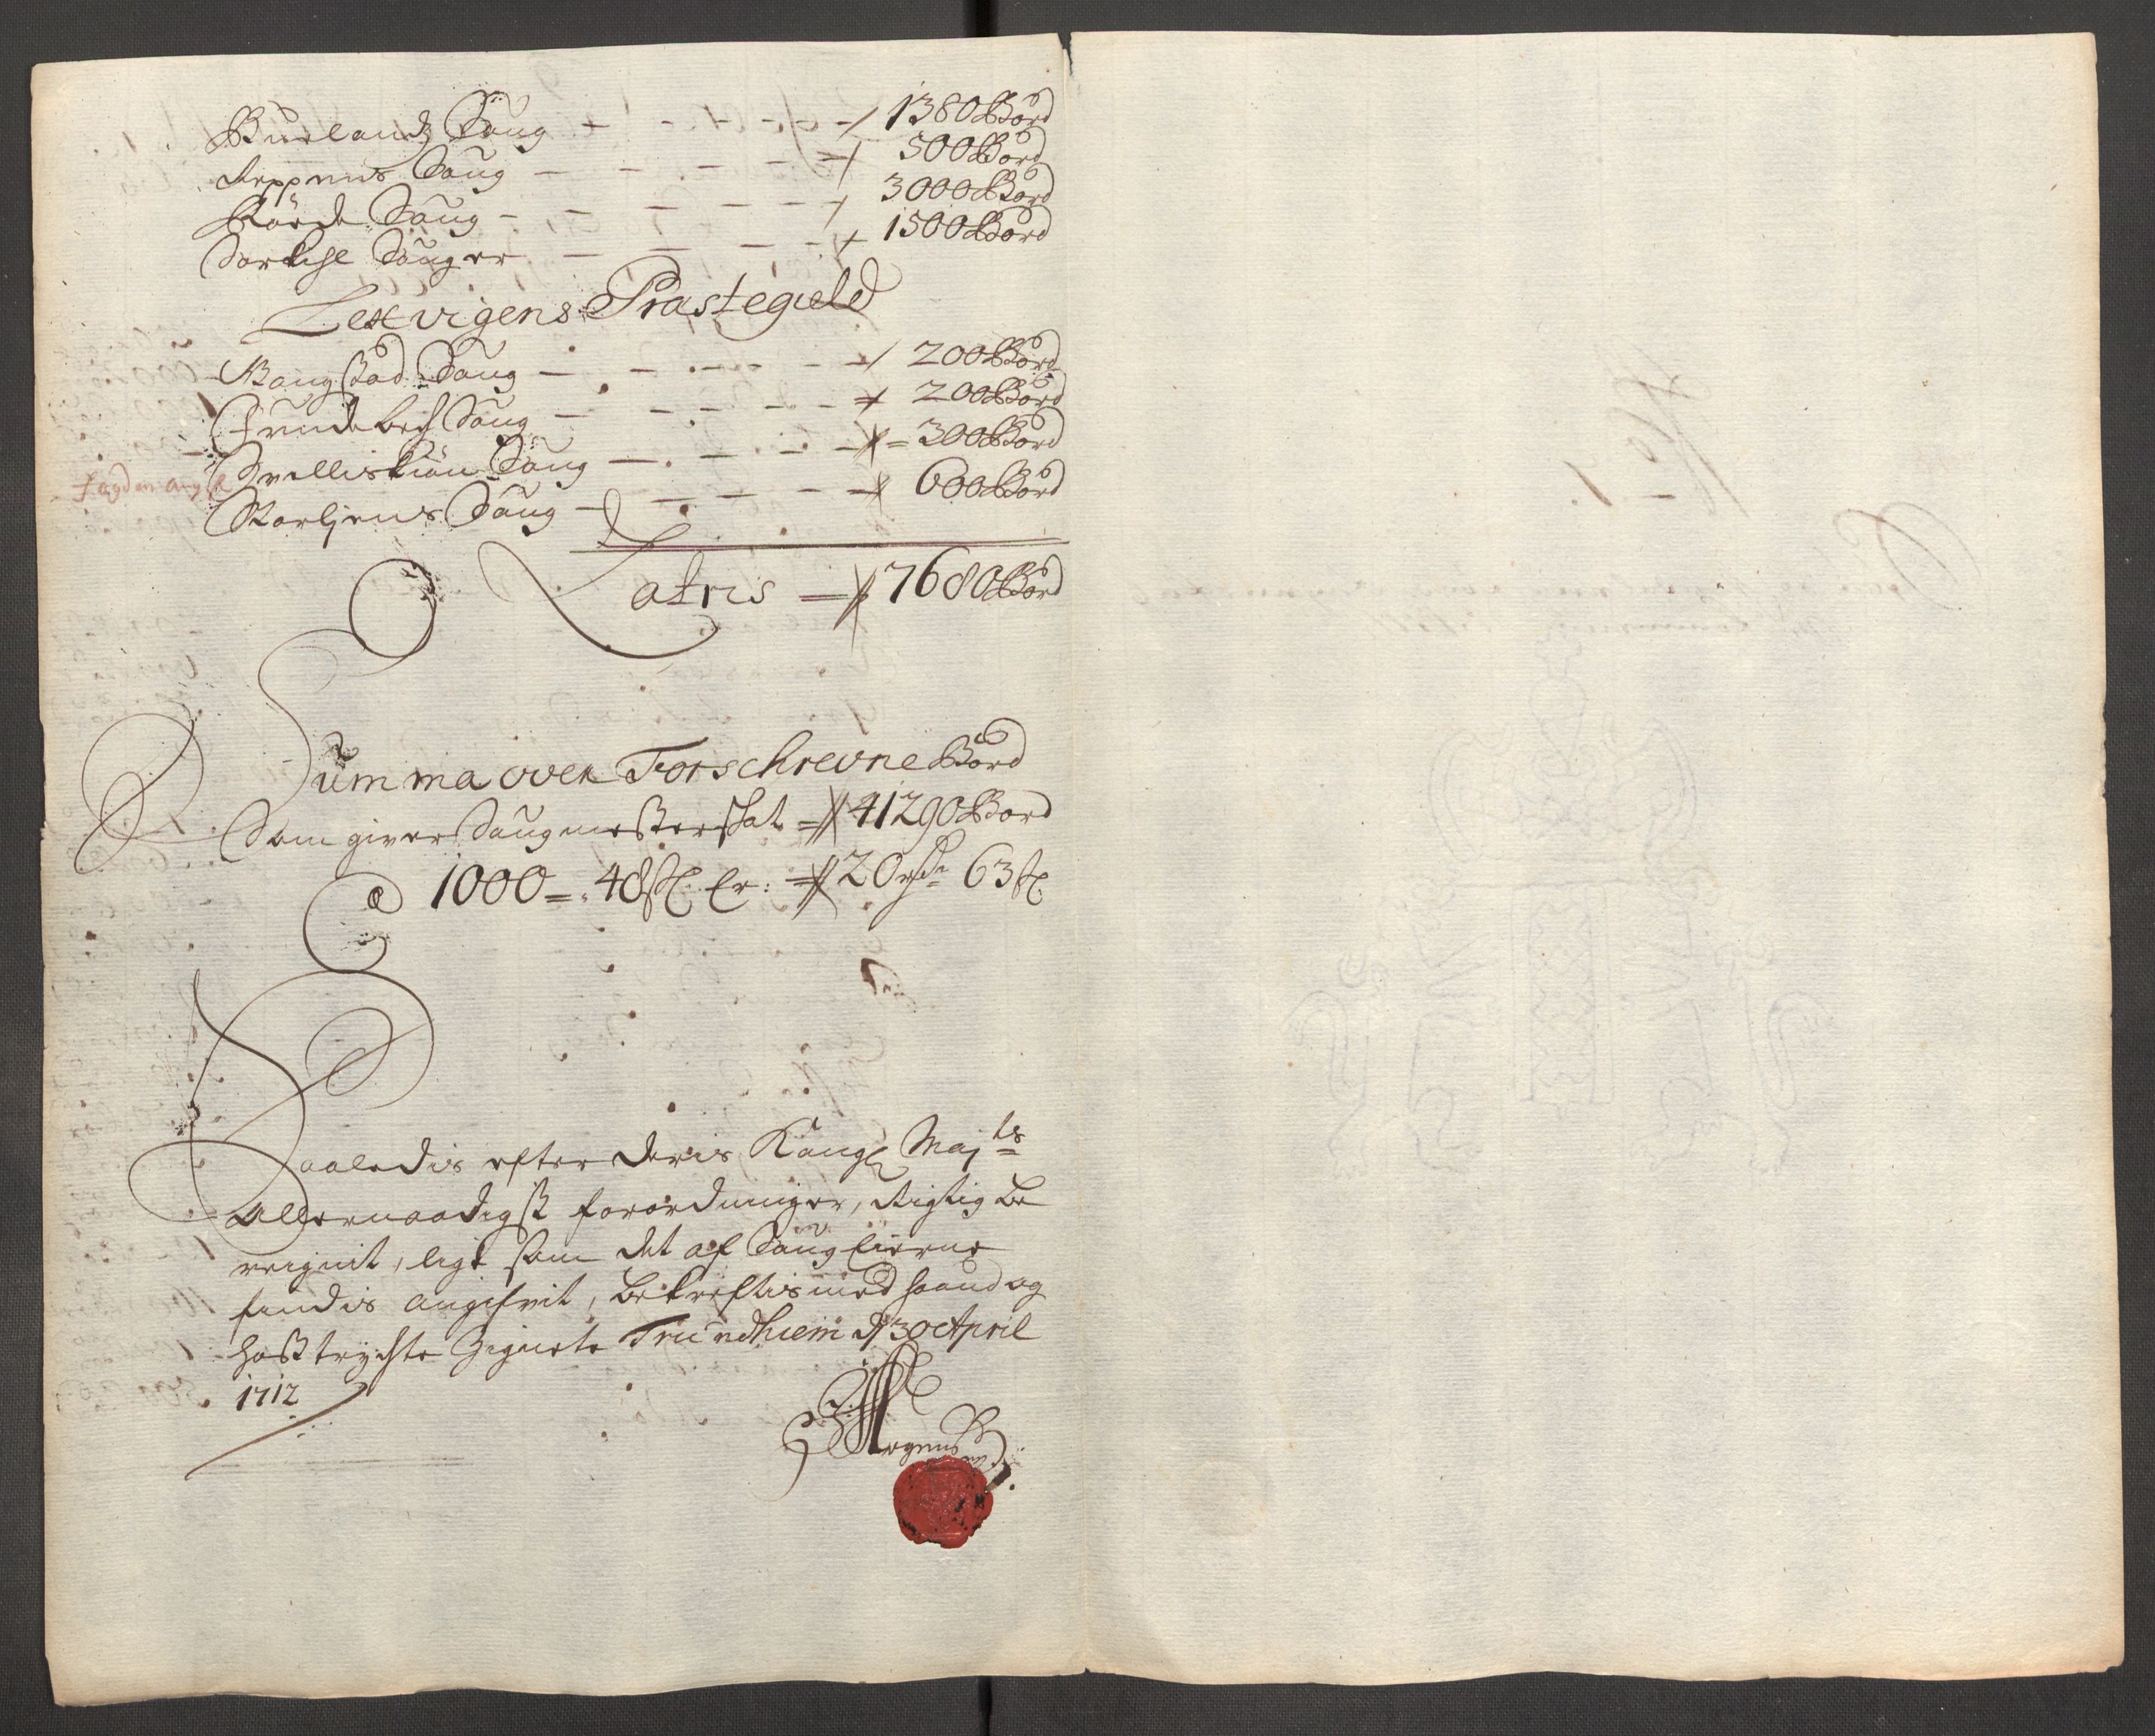 Buelandtz Saug - - - - - 1380 Bord
Reppens Saug - - - - - 500 Bord
Rörde Saug - - - - - - 3000 Bord
Sortche Sauger - - - - - 1500 Bord
Lexvigens Prastegield
Bangstad Saug - - - - - 200 Bord
Grundebech Saug - - - - - 200 Bord
Saug - - - - = 300 Bord
Fogden ang
Saug - - - - - 600 Bord
Latris = 7680 Bord
Summa over Forschrevne Bord
Som giver Saugmesterschat = 41290 Bord
a 1000 = 48 s. er: = 20 rdr 63 s.
Saaledis efter deris Kongl Mayts
allernaadigst forordninger, Rigtig be
reignit, ligt som det af Saug Eierne
findis angifvit, bekreftis med haand og
hostrychte Zignete Trundhiem d 30 April
1712
No 1.